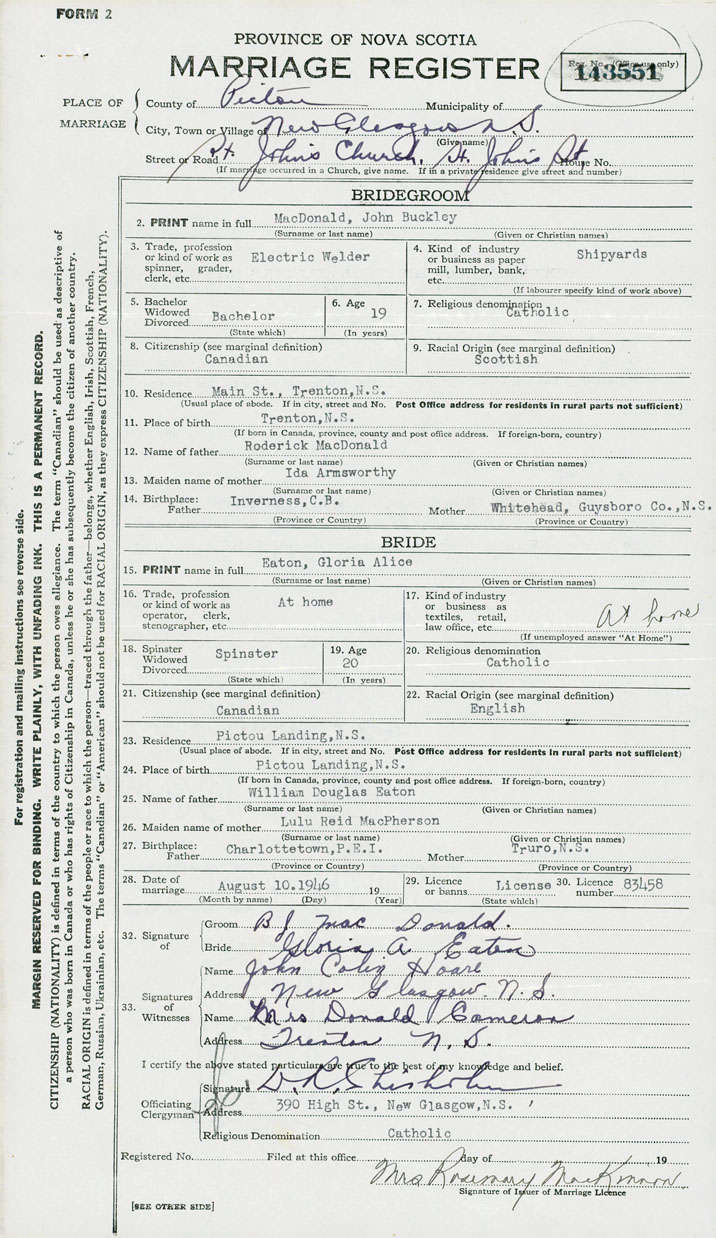 FORM 2
PROVINCE OF NOVA SCOTIA
MARRIAGE REGISTER
Reg. No. (Office use only)
143551
PLACE OF MARRIAGE
County of Pictou Municipality of
City, Town or Village of New Glasgow N.S.
(Give name)
Street or Road St. John's Church, St. John's St. House No.
(If marriage occurred in a Church, give name. If in a private residence give street and number)
BRIDEGROOM
2. PRINT name in full MacDonald, John Buckley
(Surname or last name) (Given or Christian names)
3. Trade, profession or kind of work as spinner, grader, clerk, etc. Electric Welder
4. Kind of industry or business as paper mill, lumber, bank, etc. Shipyards
(If labourer specify kind of work above)
5. Bachelor Widowed Divorced Bachelor
(State which)
6. Age 19
(In years)
7. Religious denomination Catholic
8. Citizenship (see marginal definition) Canadian
9. Racial Origin (see marginal definition) Scottish
10. Residence Main St., Trenton,N.S.
(Usual place of abode. If in city, street and No. Post Office address for residents in rural parts not sufficient)
11. Place of birth Trenton,N.S.
(If born in Canada, province, county and post office address. If foreign-born, country)
12. Name of father Roderick MacDonald
(Surname or last name) (Given or Christian names)
13. Maiden name of mother Ida Armsworthy
(Surname or last name) (Given or Christian names)
14. Birthplace: Father Inverness,C.B. Mother Whitehead, Guysboro Co.,N.S.
(Province or Country) (Province or Country)
BRIDE
15. PRINT name in full Eaton, Gloria Alice
(Surname or last name) (Given or Christian names)
16. Trade, profession or kind of work as operator, clerk, stenographer, etc. At home
17. Kind of industry or business as textiles, retail, law office, etc. At home
(If unemployed answer "At Home")
18. Spinster Widowed Divorced Spinster
(State which)
19. Age 20
(In years)
20. Religious denomination Catholic
21. Citizenship (see marginal definition) Canadian
22. Racial Origin (see marginal definition) English
23. Residence Pictou Landing,N.S.
(Usual place of abode. If in city, street and No. Post Office address for residents in rural parts not sufficient)
24. Place of birth Pictou Landing,N.S.
(If born in Canada, province, county and post office address. If foreign-born, country)
25. Name of father William Douglas Eaton
(Surname or last name) (Given or Christian names)
26. Maiden name of mother Lulu Reid MacPherson
(Surname or last name) (Given or Christian names)
27. Birthplace: Father Charlottetown,P.E.I. Mother Truro,N.S.
(Province or Country) (Province or Country)
28. Date of marriage August 10.1946 19
(Month by name) (Day) (Year)
29. Licence or banns License
(State which)
30. Licence number 83458
32. Signature of
Groom B J Mac Donald.
Bride Gloria A Eaton
33. Signatures of Witnesses
Name John Hoare
Address New Glasgow N.S.
Name Mrs Donald Cameron
Address Trenton N.S.
I certify the above stated particulars are true to the best of my knowledge and belief.
Officiating Clergyman
Signature D.R. Chisholm
Address 390 High St., New Glasgow,N.S.
Religious Denomination Catholic
Registered No. Filed at this office day of 19
Mrs Rosemary MacKinnon
Signature of Issuer of Marriage Licence
[SEE OTHER SIDE]
For registration and mailing instructions see reverse side.
MARGIN RESERVED FOR BINDING. WRITE PLAINLY, WITH UNFADING INK. THIS IS A PERMANENT RECORD.
CITIZENSHIP (NATIONALITY) is defined in terms of the country to which the person owes allegiance. The term "Canadian" should be used as descriptive of
a person who was born in Canada or who has rights of Citizenship in Canada, unless he or she has subsequently become the citizen of another country.
RACIAL ORIGIN is defined in terms of the people or race to which the person—traced through the father—belongs, whether English, Irish, Scottish, French,
German, Russian, Ukrainian, etc. The terms "Canadian" or "American" should not be used for RACIAL ORIGIN, as they express CITIZENSHIP (NATIONALITY).